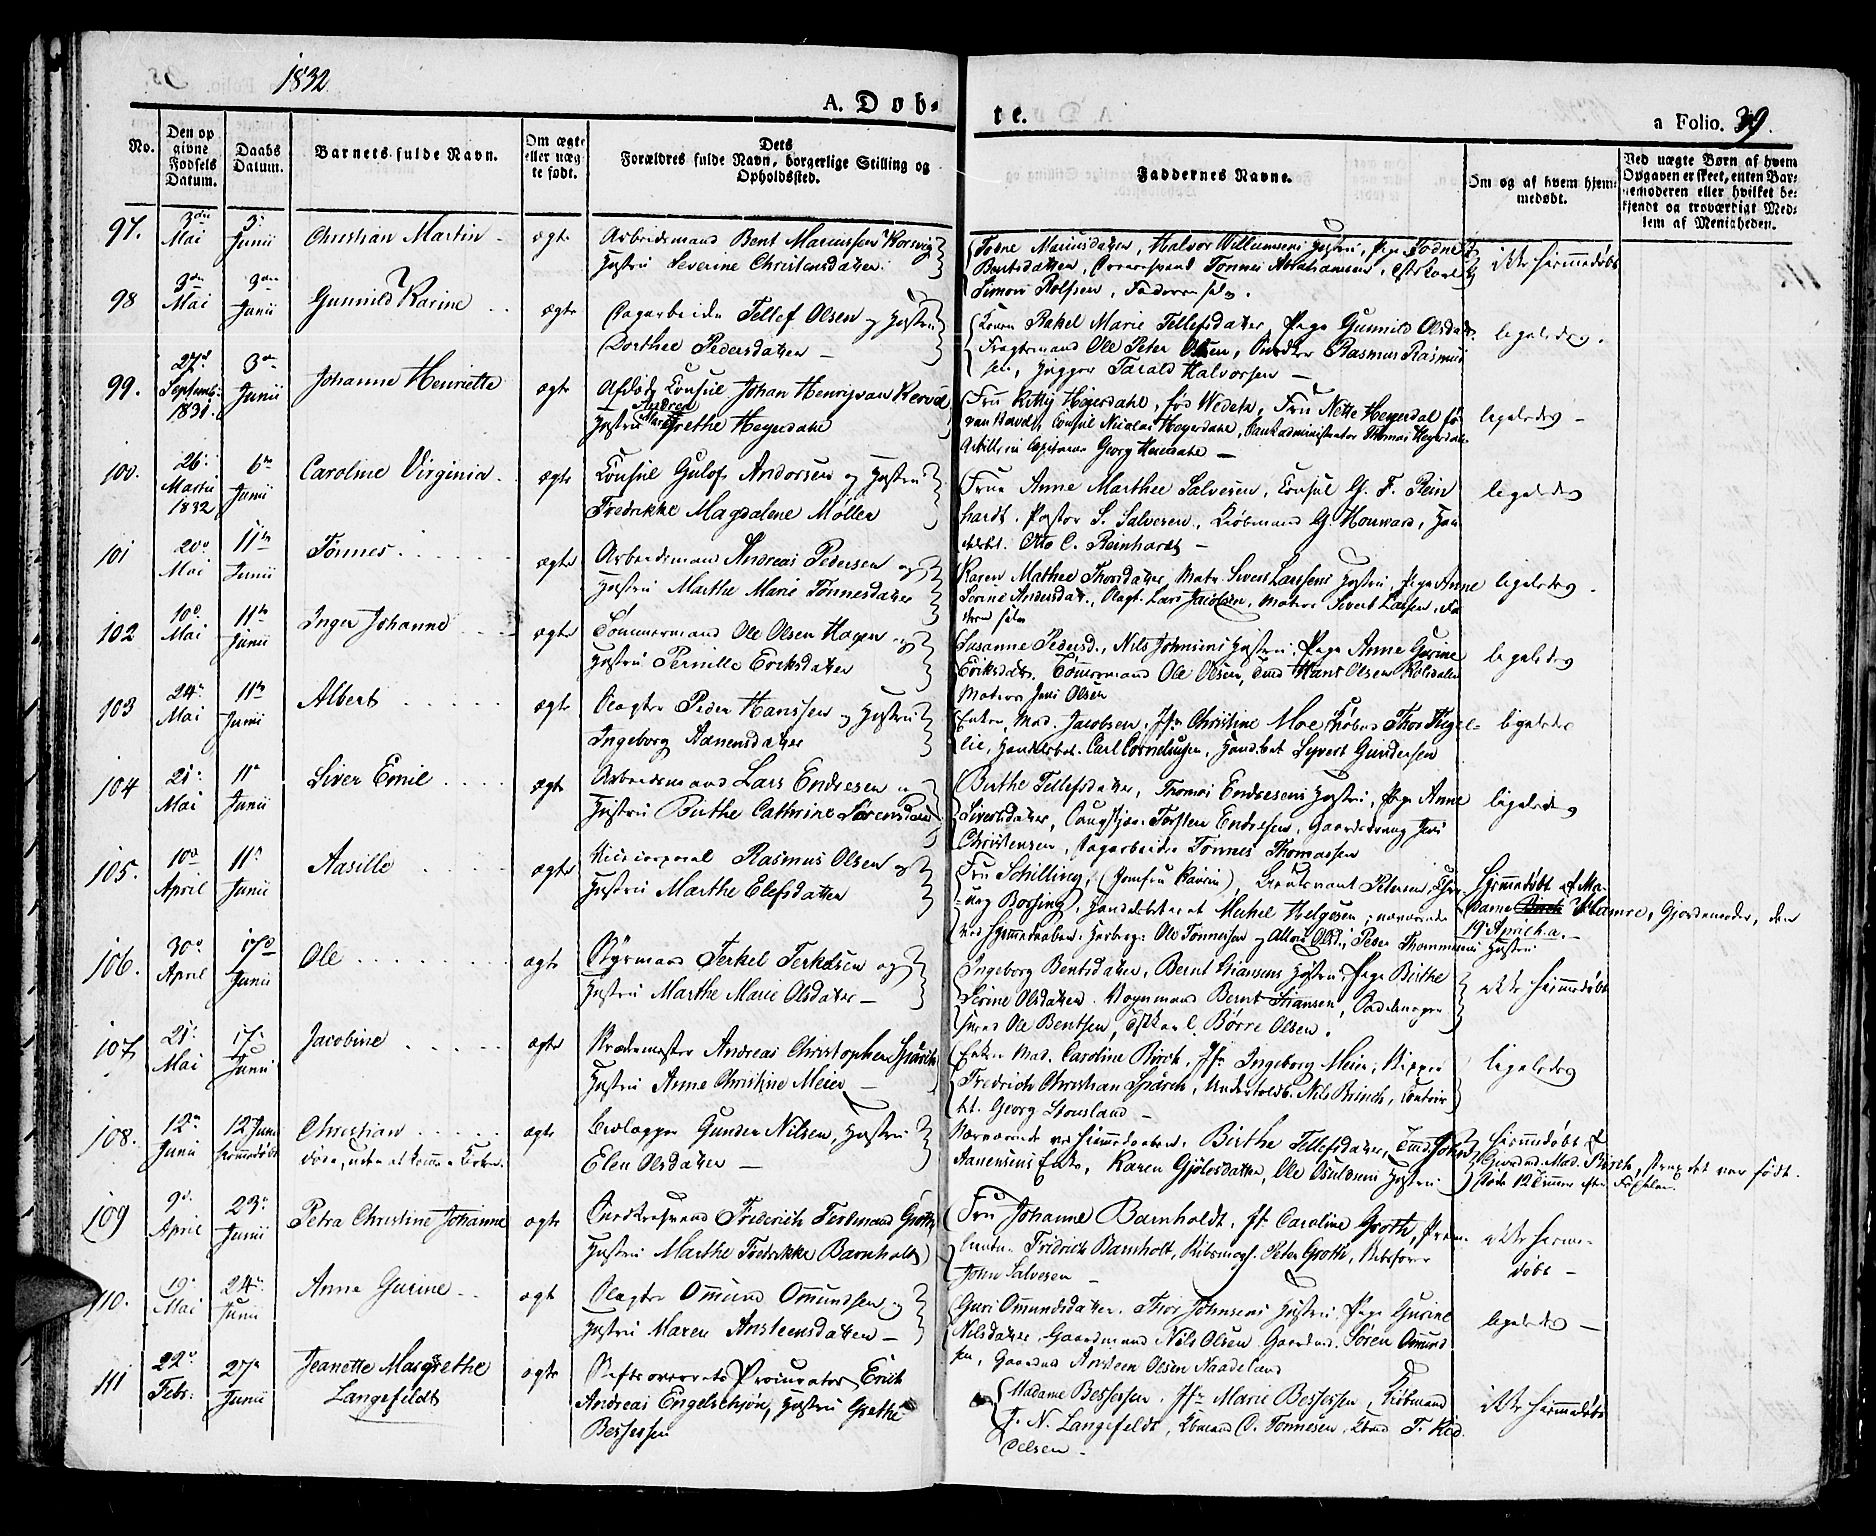 1832
A. Döb-
te.
a Folio. 39.
No.
Den op
givne
Fødsels
Datum.
Daabs
Datum.
Barnets fulde Navn.
Om ægte
eller uæg-
te født.
Dets
Forældres fulde Navn, borgerlige Stilling og
Opholdssted.
Faddernes Navne.
Om og af hvem hjem-
medøbt.
Ved uægte Børn af hvem
Opgaven er skeet, enten Bar-
nemoderen eller hvilket be-
kjendt og troværdigt Med-
lem af Menigheden.
97. 3die Mai 3. Junii Christian Martin ægte Arbeidsmand Bent Mariussen Korsvig
Hustru Severine Christensdatter.
Todne Mariusdatter, Halvor Willumsens Hustru, Pige Todne
Bentsdatter, Tønnes Abrahamsen,
Simon Rolfsen, Faderen selv.
ikke hiemmedøbt
98 3die Mai 3die Junii Gunnild Karine ægte Dagarbeider Tellef Olsen og Hustru
Dorthee Pedersdatter
Konen Rakel Marie Tellefsdatter, Pige Gunnild Olsdatter
Fragtemand Ole Peter Olsen, Snedker Rasmus Rasmus
sen, Tarald Halvorsen
ligeledes.
99. 27de Septembr. 1831. 3die Junii Johanne Henriette ægte Afdøde Consul Johan Henry van Kervel
Hustru Andrea Margrethe Heyerdahl
Fru Kitty Heyerdahl, fød Wedele, Fru Nette Heyerdal fød
Consul Nicolai Heyerdahl, Bankadministrator Thomas Heyerdahl
Artilleri Capitain Georg Heyerdahl
ligeledes
100. 26. Martii 1832 6te Junii Caroline Virginia. ægte Consul Gulof Andorsen og Hustru
Fredrikke Magdalene Møller
Frue Anne Marthee Salvesen, Consul G. F. Rein
hardt. Pastor S. Salvesen, Kiøbmand G. Houward, Han
delsbt. Otto C. Reinhardt
ligeledes
101 20de Mai 11te Junii Tønnes. ægte Arbeidsmand Andreas Pedersen og
Hustru Marthe Marie Tønnesdatter
Karen Mathee Thorsdatter, Matr. Sivert Larssens Hustru, Pige Anne
Serine Andersdat., Lars Jacobsen, Matros Sivert Larsen, Fa
deren selv
ligeledes.
102 10de Mai 11te Junii Inger Johanne ægte Tømmermand Ole Olsen Hagen og
Hustru Pernille Eriksdatter
Susanne Pedersd., Nils Johnsens Hustru. Pige Anne Gurine
Eriksdatr. Tømmermand Ole Olsen, Hans Olsen Kolsdalen
Matros Jens Olsen
ligeledes
103 24. Mai 11te Junii Albert ægte Slagter Peder Hanssen og Hustru
Ingeborg Aanensdatter
Enken Mad. Jacobsen, Jfr. Christine Moe, Thor
lie, Handelsbt. Carl Cornelius, Handlsbt Syvert Gundersen
ligeledes
104 21. Mai 11te Junii Siver Emil ægte Arbeidsmand Lars Endresen
Hustru Birthe Cathrine Sørensdatter
Birthe Tellefsdatter, Thomas Endresens Hustru, Pige Anne
Siversdatter, Torsten Endresen, Gaardsdreng Jens
Christensen, Dagarbeider Tønnes Thomassen
ligeledes
105. 10de April 11te Junii Aasille ægte Vicecorporal Rasmus Olsen og
Hustru Marthe Elefsdatter
Fru Schilling, (Jomfru Ravin), Lieutenant Petersen,
Handelsbetient Mickel Helgesen; nærværende
ved hjemmedaaben. Ole Tønnessen og Peder Thommesens Hustru
Hjemmedøbt af Ma-
dame Birch Hamre, Gjordemoder, den
19 April h. a.
106. 30de April 17de Junii Ole ægte Styrmand Terkel Terkelsen og
Hustru Marthe Marie Olsdatter
Ingeborg Bentsdatter, Bernt Hansens Hustru. Pige Birthe
Serine Olsdatter. Vognmand Bernt Hansen, Sadelmager
svend Ole Bentsen, Børre Olsen.
ikke hiemmedøbt
107. 21. Mai 17. Junii Jacobine ægte Andreas Christopher
Hustru Anne Christine Meier
Enken Mad. Caroline Birch, Jfr. Ingeborg Meier, Skipper
Fredrich Christian Undertoldb. Nils Brinch, Contoir
bt. Georg Stousland
ligeledes
108. 12te Junii 12 Juni hiemmedøbt Christian
døde, uden at komme i Kirken.
ægte Gunder Nilsen, Hustru
Elen Olsdatter
Nærværende ved hiemmedaaben. Birthe Tellefsdatter, John
Aanensens Enke, Karen Gjölesdatter, Ole Osuldsens Hustru
hiemmedøbt af
Gjordmd. Mad. Birch, strax det var født.
døde 12 Timer efter Fødselen.
109 9de April 23de Junii Petra Christine Johanne ægte Snedkersvend Frederich Ferdinand Groth
Hustru Marthe Fredrikke Barnholdt
Fru Johanne Barnholdt, Jfr. Caroline Groth, Prem-
lieutn. Fridrich Barnholt, Peter Groth,
John Salvesen
ikke hiemme-
døbt
110. 19de Mai 24de Junii Anne Gurine ægte Slagter Omund Omundsen og
Hustru Maren Ansteensdatter
Guri Omundsdatter. Thor Johnsens Hustru Pige Gurine
Nilsdatter. Gaardmand Nils Olsen Gaardmd. Søren Omund
sen, Gaardmd Ansteen Olsen Naadeland
ligeledes
111 22de Febr: 27de Junii Jeanette Margrethe
Langefeldt
ægte Stiftsoverrets Procurator Erich
Andreas Engelschjøn, Hustru Grethe
Bessesen
Madame Bessesen. Jfr. Marie Bessesen, Kiøbmand
J. N. Langefeldt, Kbmand O. Tønnesen, Kbmd T. Kid
delsen
ikke hiemmedøbt